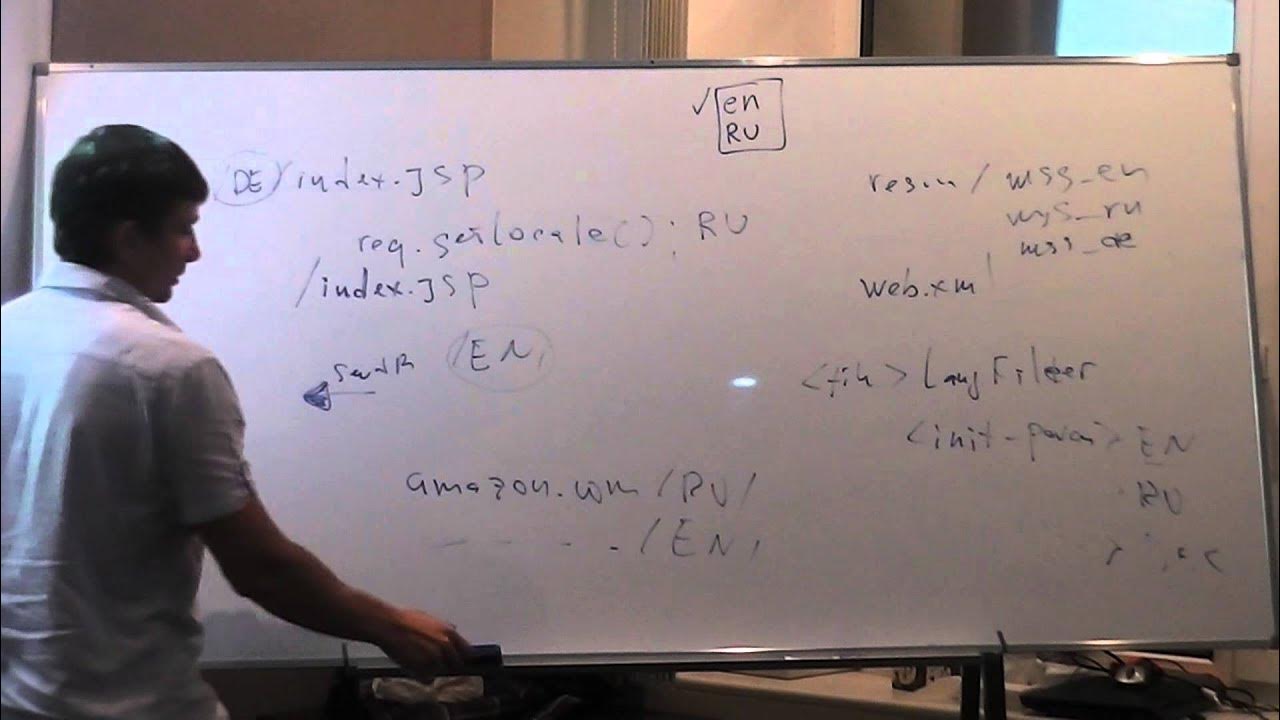 ✓ en
RU
DE /index.JSP
req.getLocale(); RU
/index.JSP
SendR /EN/
amazon.com/RU/
- - - - . /EN/
/ msg_en
msg_ru
web.xml
LangFilter
<init-param> EN
RU